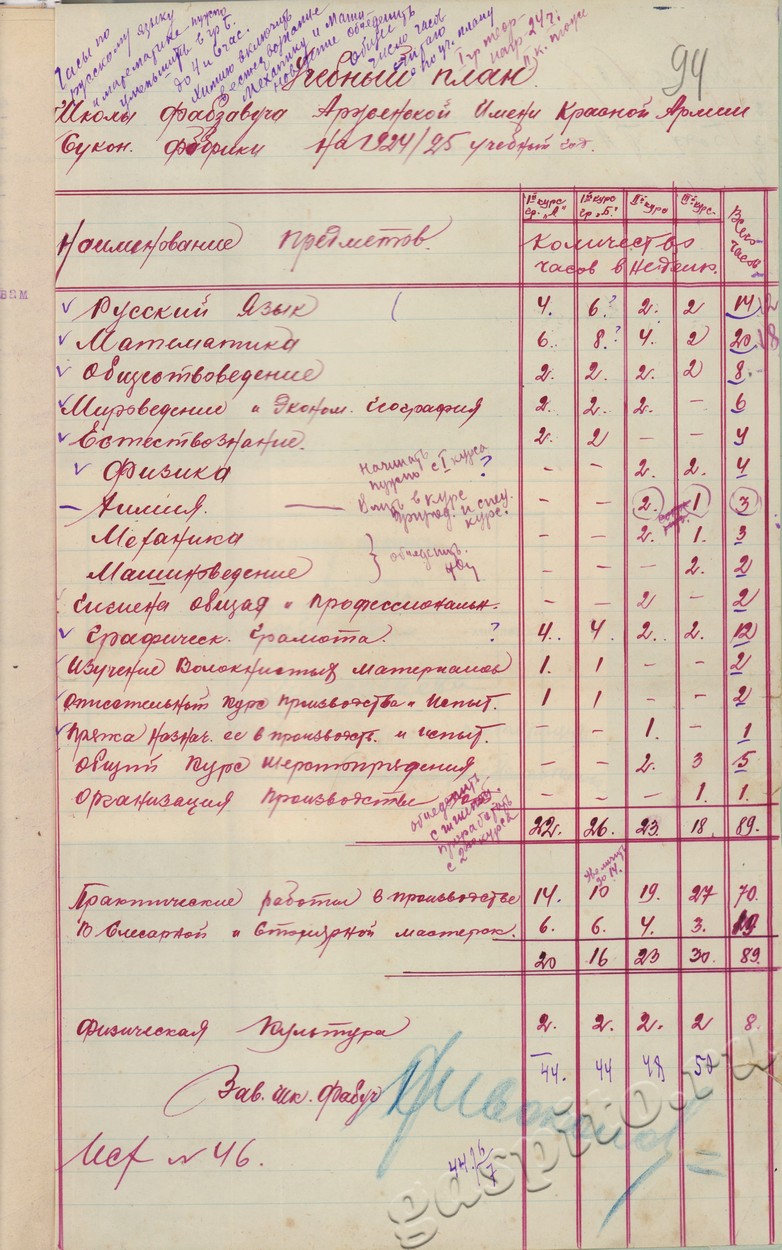 Часы по
русскому языку
и математике нужно
уменьшить в гр Б.
до 4 и 6 час.
Химию включить
в естествознание
Механику и Маши-
новедение объеденить
Общее
число часов
по уч. плану
I гр теор-
94
Учебный план
Школы фабзавуча Арженской Имени Красной Армии
Сукон. Фабрики на 1924/25 учебный год.
Наименование предметов.
Iй курс гр. „А" Iй курс гр. „Б." IIй курс IIIй курс. Всего часов
Количество
часов в неделю.
вам
Русский Язык 4. 6? 2. 2 14 12
Математика 6. 8? 4. 2 20 18
Обществоведение 2. 2. 2. 2 8
Мироведение и Эконом. География 2. 2. 2. – 6
Естествознание. 2. 2 – – 4
Начинать
нужно с I курса
Физика ? – – 2. 2. 4
Влить в курс
природ. и спец.
курс.
Химия. – – 2. 1 3
Механика – – 2. 1. 3
объеденить.
Машиноведение – – – 2. 2
Гигиена общая и профессиональн. – – 2 – 2
Графическ. Грамота. ? 4. 4. 2. 2. 12
Изучение Волокнистых материалов 1. 1 – – 2
Описательный курс производства и испыт. 1 1 – – 2
Пряжа назнач. ее в производств. и испыт. – – 1. – 1
Общий курс шерстопрядения – – 2. 3 5
Организация производства – – – 1. 1.
объеденить
проработать
с 2го курса
22. 26. 23. 18. 89.
Увеличить
до 14.
Практические работы в производстве 14. 10 19. 27 70.
В Слесарной и Столярной мастерск. 6. 6. 4. 3. 19
20 16 23 30. 89.
Физическая Культура 2. 2. 2. 2 8.
44. 44 48 50
Зав. шк. Фабуч
Исх № 46.
gaspito.ru